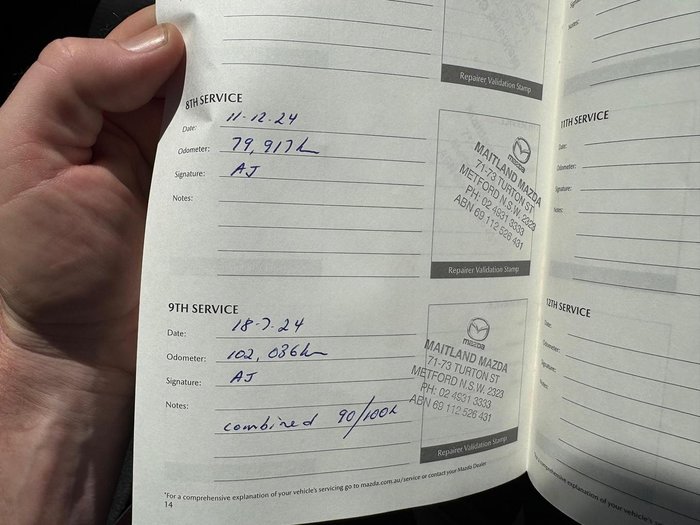 Repairer Validation Stamp
8TH SERVICE
Date: 11-12-24
Odometer: 79,917km
Signature: AJ
Notes:
mazda
MAITLAND MAZDA
71-73 TURTON ST
METFORD N.S.W. 2323
PH: 02 4931 3333
ABN 69 112 526 431
Repairer Validation Stamp
9TH SERVICE
Date: 18-7-24
Odometer: 102,036km
Signature: AJ
Notes:
combined 90/100k
mazda
MAITLAND MAZDA
71-73 TURTON ST
METFORD N.S.W. 2323
PH: 02 4931 3333
ABN 69 112 526 431
Repairer Validation Stamp
*For a comprehensive explanation of your vehicle's servicing go to mazda.com.au/service or contact your Mazda Dealer
14
Signature:
Notes:
11TH SERVICE
Date:
Odometer:
Signature:
Notes:
12TH SERVICE
Date:
Odometer:
Signature:
Notes: